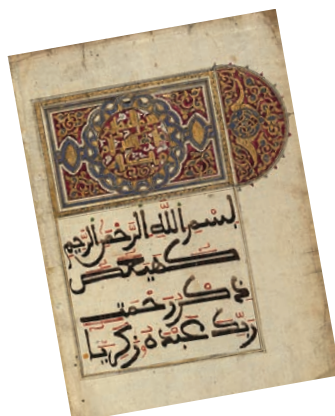 بسم الله الرحمن الرحيم
كهيعص
ذكر رحمت
ربك عبده زكريا